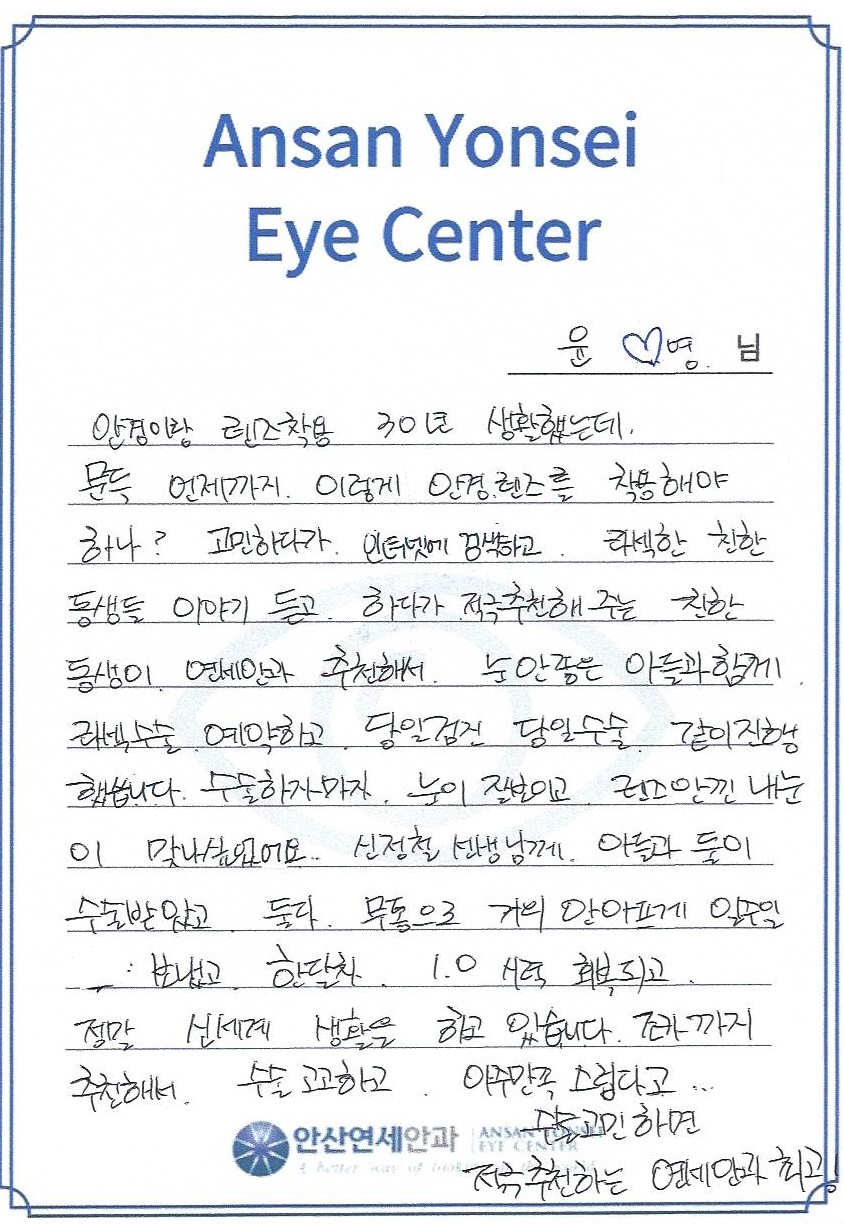 Ansan Yonsei
Eye Center
윤 ♡영 님
안경이랑 렌즈착용 30년 생활했는데.
문득 언제까지. 이렇게 안경.렌즈를 착용해야
하나? 고민하다가. 인터넷에 검색하고. 라섹한 친한
동생들 이야기 듣고. 하다가 적극추천해 주는 친한
동생이. 연세안과 추천해서. 눈 안좋은 아들과 함께.
라섹수술 예약하고. 당일검진 당일수술. 같이진행
했습니다. 수술하자마자. 눈이 잘보이고. 렌즈안낀 내눈
이 맞나싶었어요.. 신정철 선생님께. 아들과 둘이
수술받았고. 둘다. 무통으로 거의 안아프게 일주일
보냈고. 한달차. 1.0 시력 회복되고.
정말 신세계 생활을 하고 있습니다. 조카까지
추천해서. 수술 고고하고. 아주만족 스럽다고...
수술고민하면
안산연세안과 ANSAN YONSEI
EYE CENTER
적극추천하는 연세안과 최고!